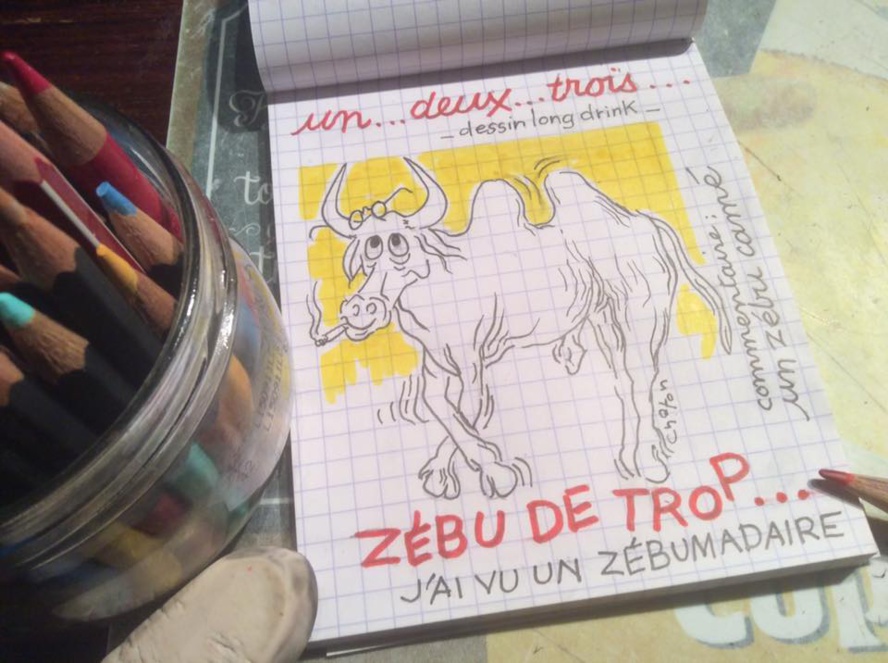 un...deux...trois...
_ dessin long drink _
commentaire:
un zébu camé
ZÉBU DE TROP...
J'AI VU UN ZÉBUMADAIRE